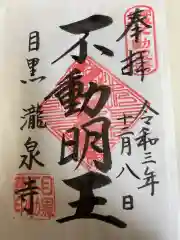 奉拝
令和三年
十二月八日
不動明王
目黒
瀧泉寺